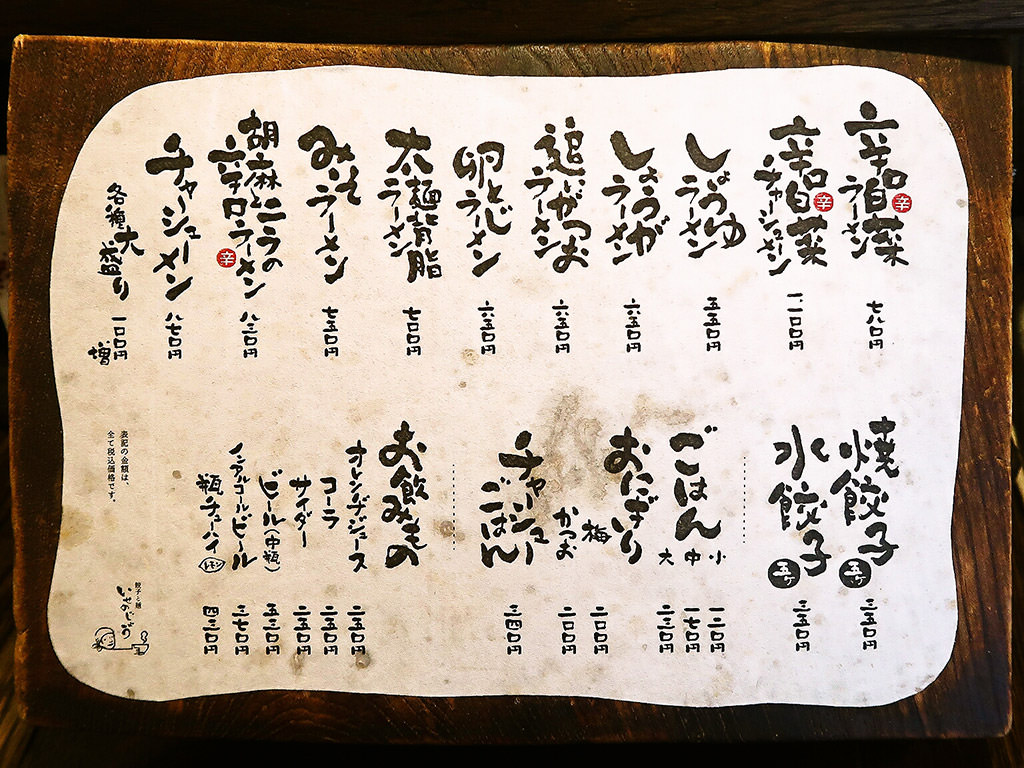 辛口白菜ラーメン 辛 七八〇円
辛口白菜チャーシューメン 辛 一一〇〇円
しょうゆラーメン 五五〇円
しょうがラーメン 六五〇円
追いがつおラーメン 六五〇円
卵とじラーメン 六五〇円
太麺背脂ラーメン 七〇〇円
みそラーメン 七五〇円
胡麻とニラの辛口ラーメン 辛 八三〇円
チャーシューメン 八七〇円
各種大盛り 一〇〇円増
焼餃子 五ケ 三五〇円
水餃子 五ケ 三五〇円
ごはん
小 一二〇円
中 一七〇円
大 二三〇円
おにぎり
梅 二〇〇円
かつお 二〇〇円
チャーシューごはん 三四〇円
お飲みもの
オレンヂジュース 二五〇円
コーラ 二五〇円
サイダー 二五〇円
ビール(中瓶) 五三〇円
ノンアルコールビール 三七〇円
瓶チューハイ レモン 四三〇円
表記の金額は、
全て税込価格です。
餃子と麺
いせのじょう